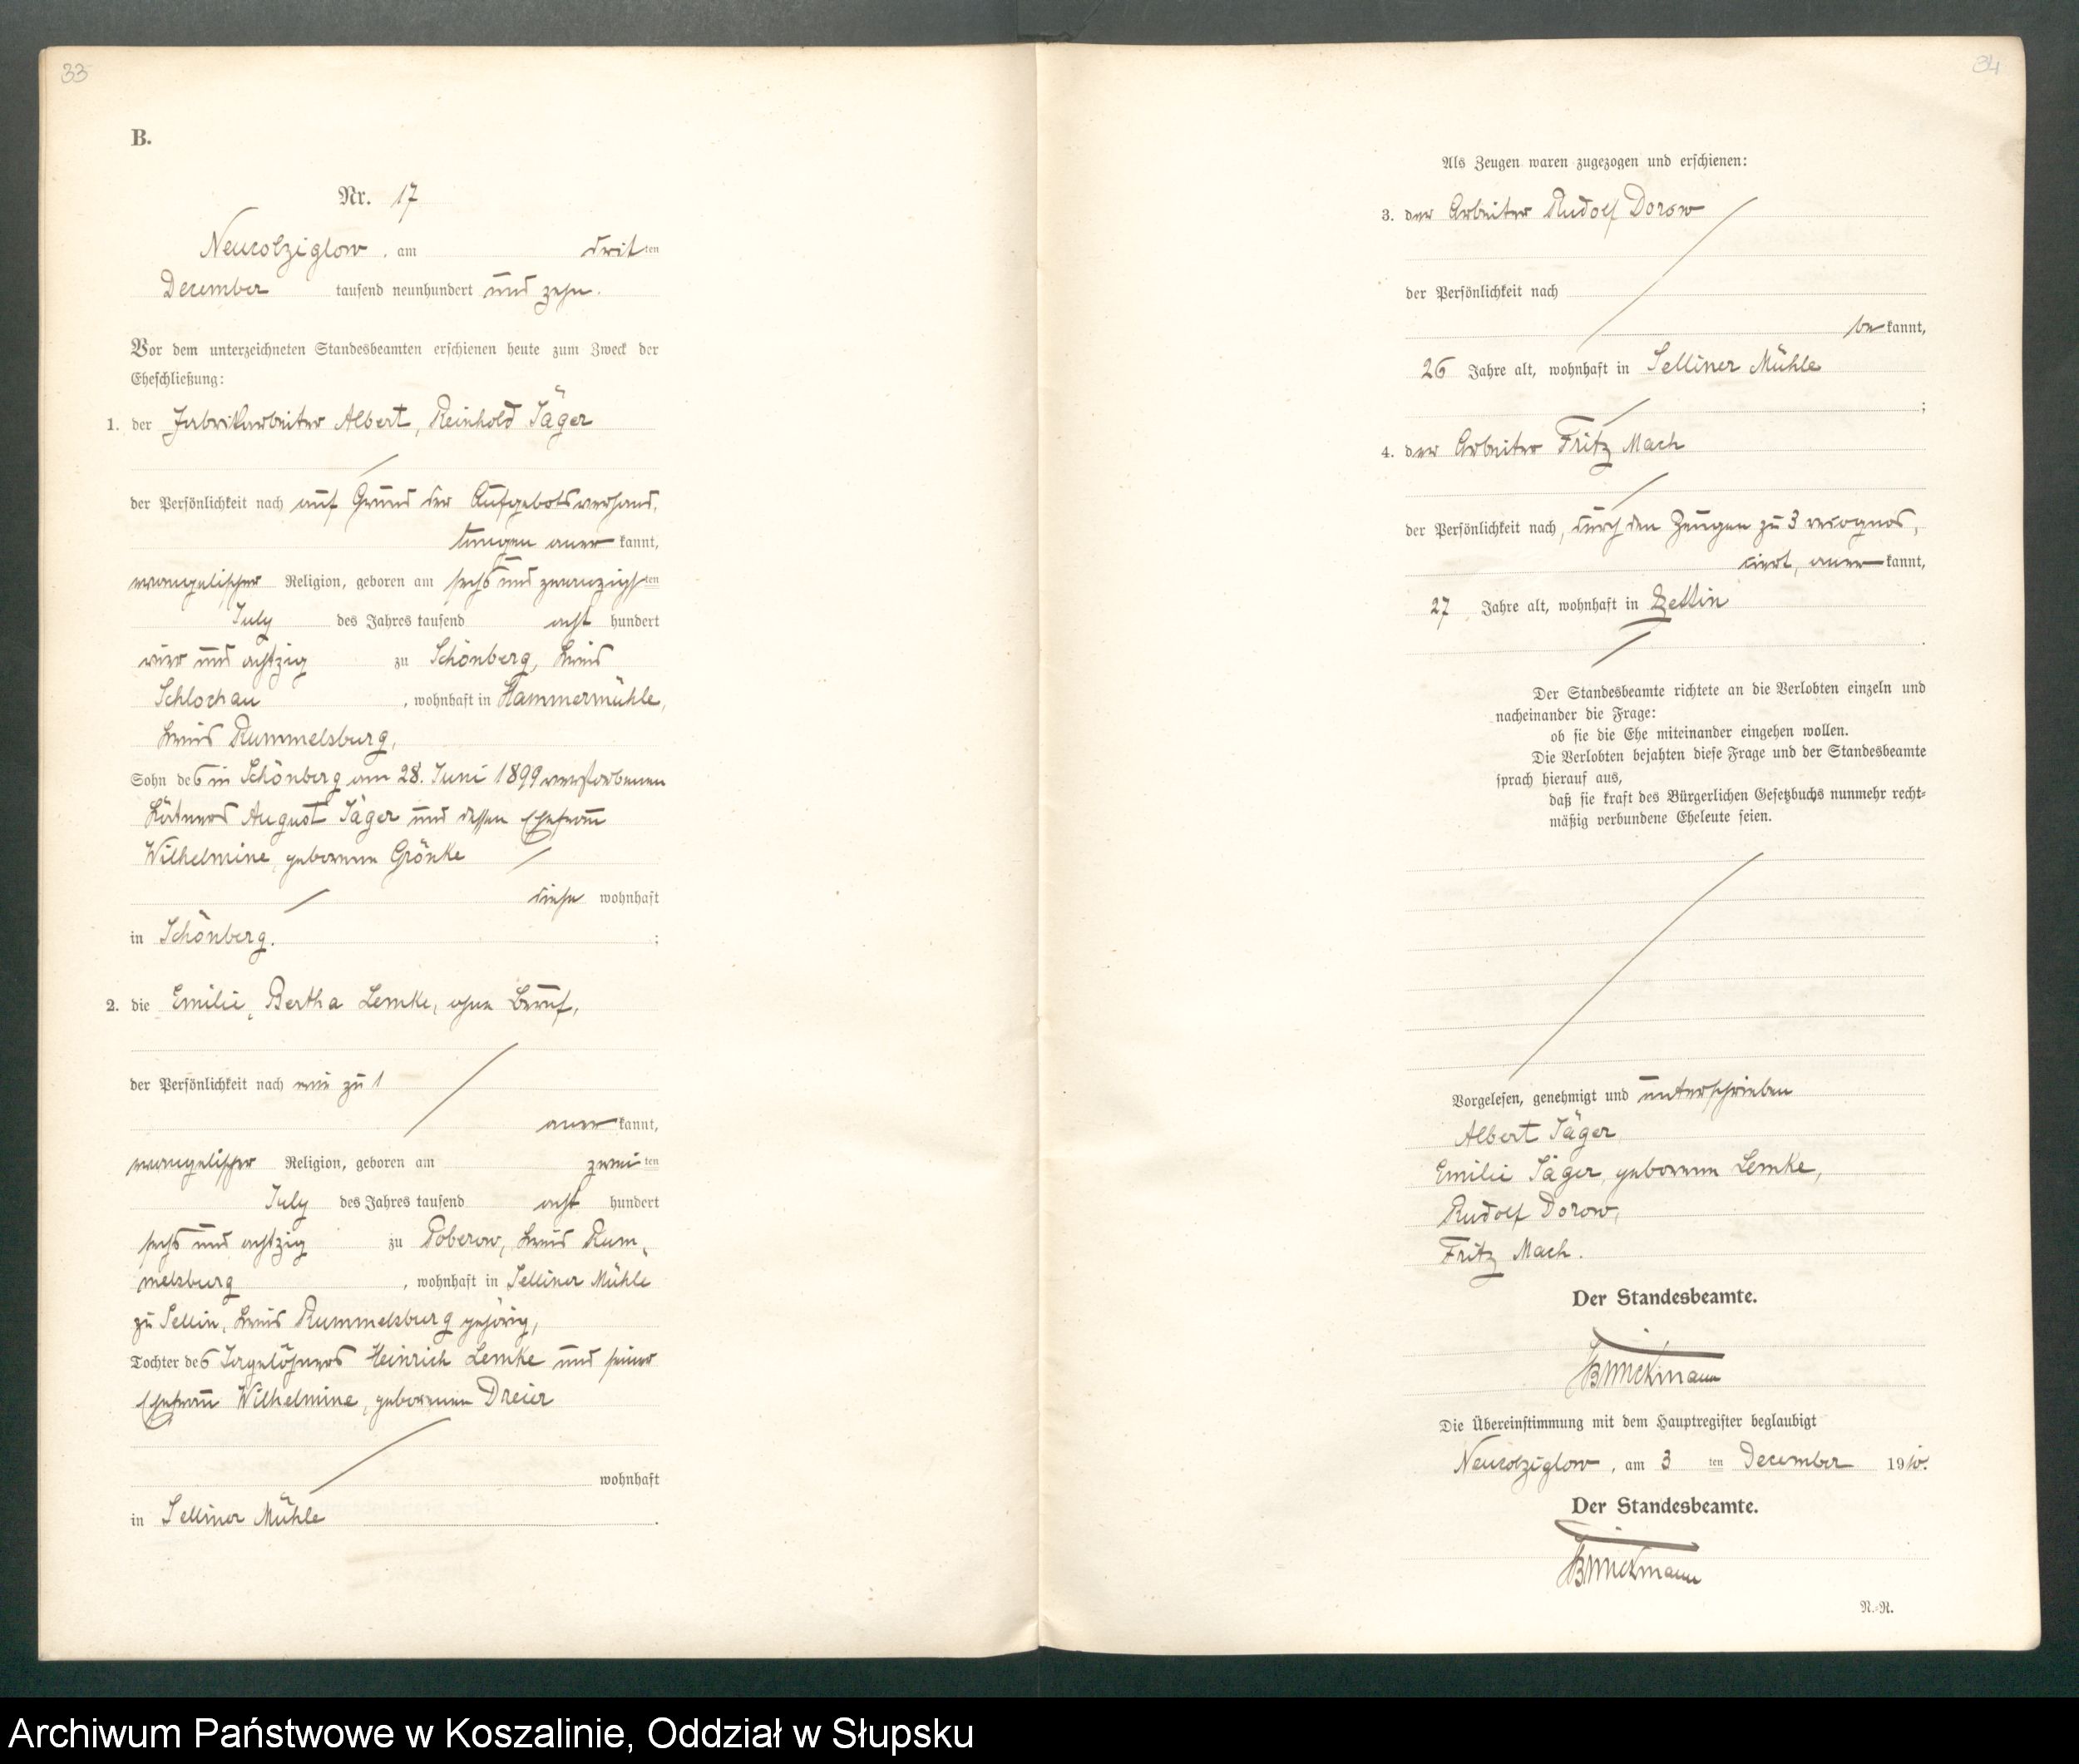 33
B.
Nr. 17
Neukolziglow, am dritten
December tausend neunhundert und zehn.
Vor dem unterzeichneten Standesbeamten erschienen heute zum Zweck der
Eheschließung:
1. der Fabrikarbeiter Albert, Reinhold Jäger
der Persönlichkeit nach auf Grund der Aufgebotsverhand,
lungen anerkannt,
evangelischer Religion, geboren am sechs und zwanzigsten
July des Jahres tausend acht hundert
vier und achtzig zu Schönberg, Kreis
Schlochau, wohnhaft in Hammermühle,
Kreis Rummelsburg,
Sohn des in Schönberg am 28. Juni 1899 verstorbenen
Kätners August Jäger und dessen Ehefrau
Wilhelmine, geborenen Grönke
diese wohnhaft
in Schönberg. ;
2. die Emilie, Bertha Lemke, ohne Beruf,
der Persönlichkeit nach wie zu 1
anerkannt,
evangelischer Religion, geboren am zweiten
July des Jahres tausend acht hundert
sechs und achtzig zu Poberow, Kreis Rum,
melsburg, wohnhaft in Selliner Mühle
zu Sellin, Kreis Rummelsburg gehörig,
Tochter des Tagelöhners Heinrich Lemke und seiner
Ehefrau Wilhelmine, geborenen Dreier
wohnhaft
in Selliner Mühle.
34
Als Zeugen waren zugezogen und erschienen:
3. der Arbeiter Rudolf Dorow
der Persönlichkeit nach
bekannt,
26 Jahre alt, wohnhaft in Selliner Mühle
;
4. der Arbeiter Fritz Mach
der Persönlichkeit nach, durch den Zeugen zu 3 recognos,
ciert, anerkannt,
27 Jahre alt, wohnhaft in Zettin
.
Der Standesbeamte richtete an die Verlobten einzeln und
nacheinander die Frage:
ob sie die Ehe miteinander eingehen wollen.
Die Verlobten bejahten diese Frage und der Standesbeamte
sprach hierauf aus,
daß sie kraft des Bürgerlichen Gesetzbuchs nunmehr recht-
mäßig verbundene Eheleute seien.
Vorgelesen, genehmigt und unterschrieben
Albert Jäger
Emilie Jäger, geborene Lemke,
Rudolf Dorow,
Fritz Mach.
Der Standesbeamte.
Brinckmann
Die Übereinstimmung mit dem Hauptregister beglaubigt
Neukolziglow, am 3 ten December 1910.
Der Standesbeamte.
Brinckmann
N.-N.
Archiwum Państwowe w Koszalinie, Oddział w Słupsku